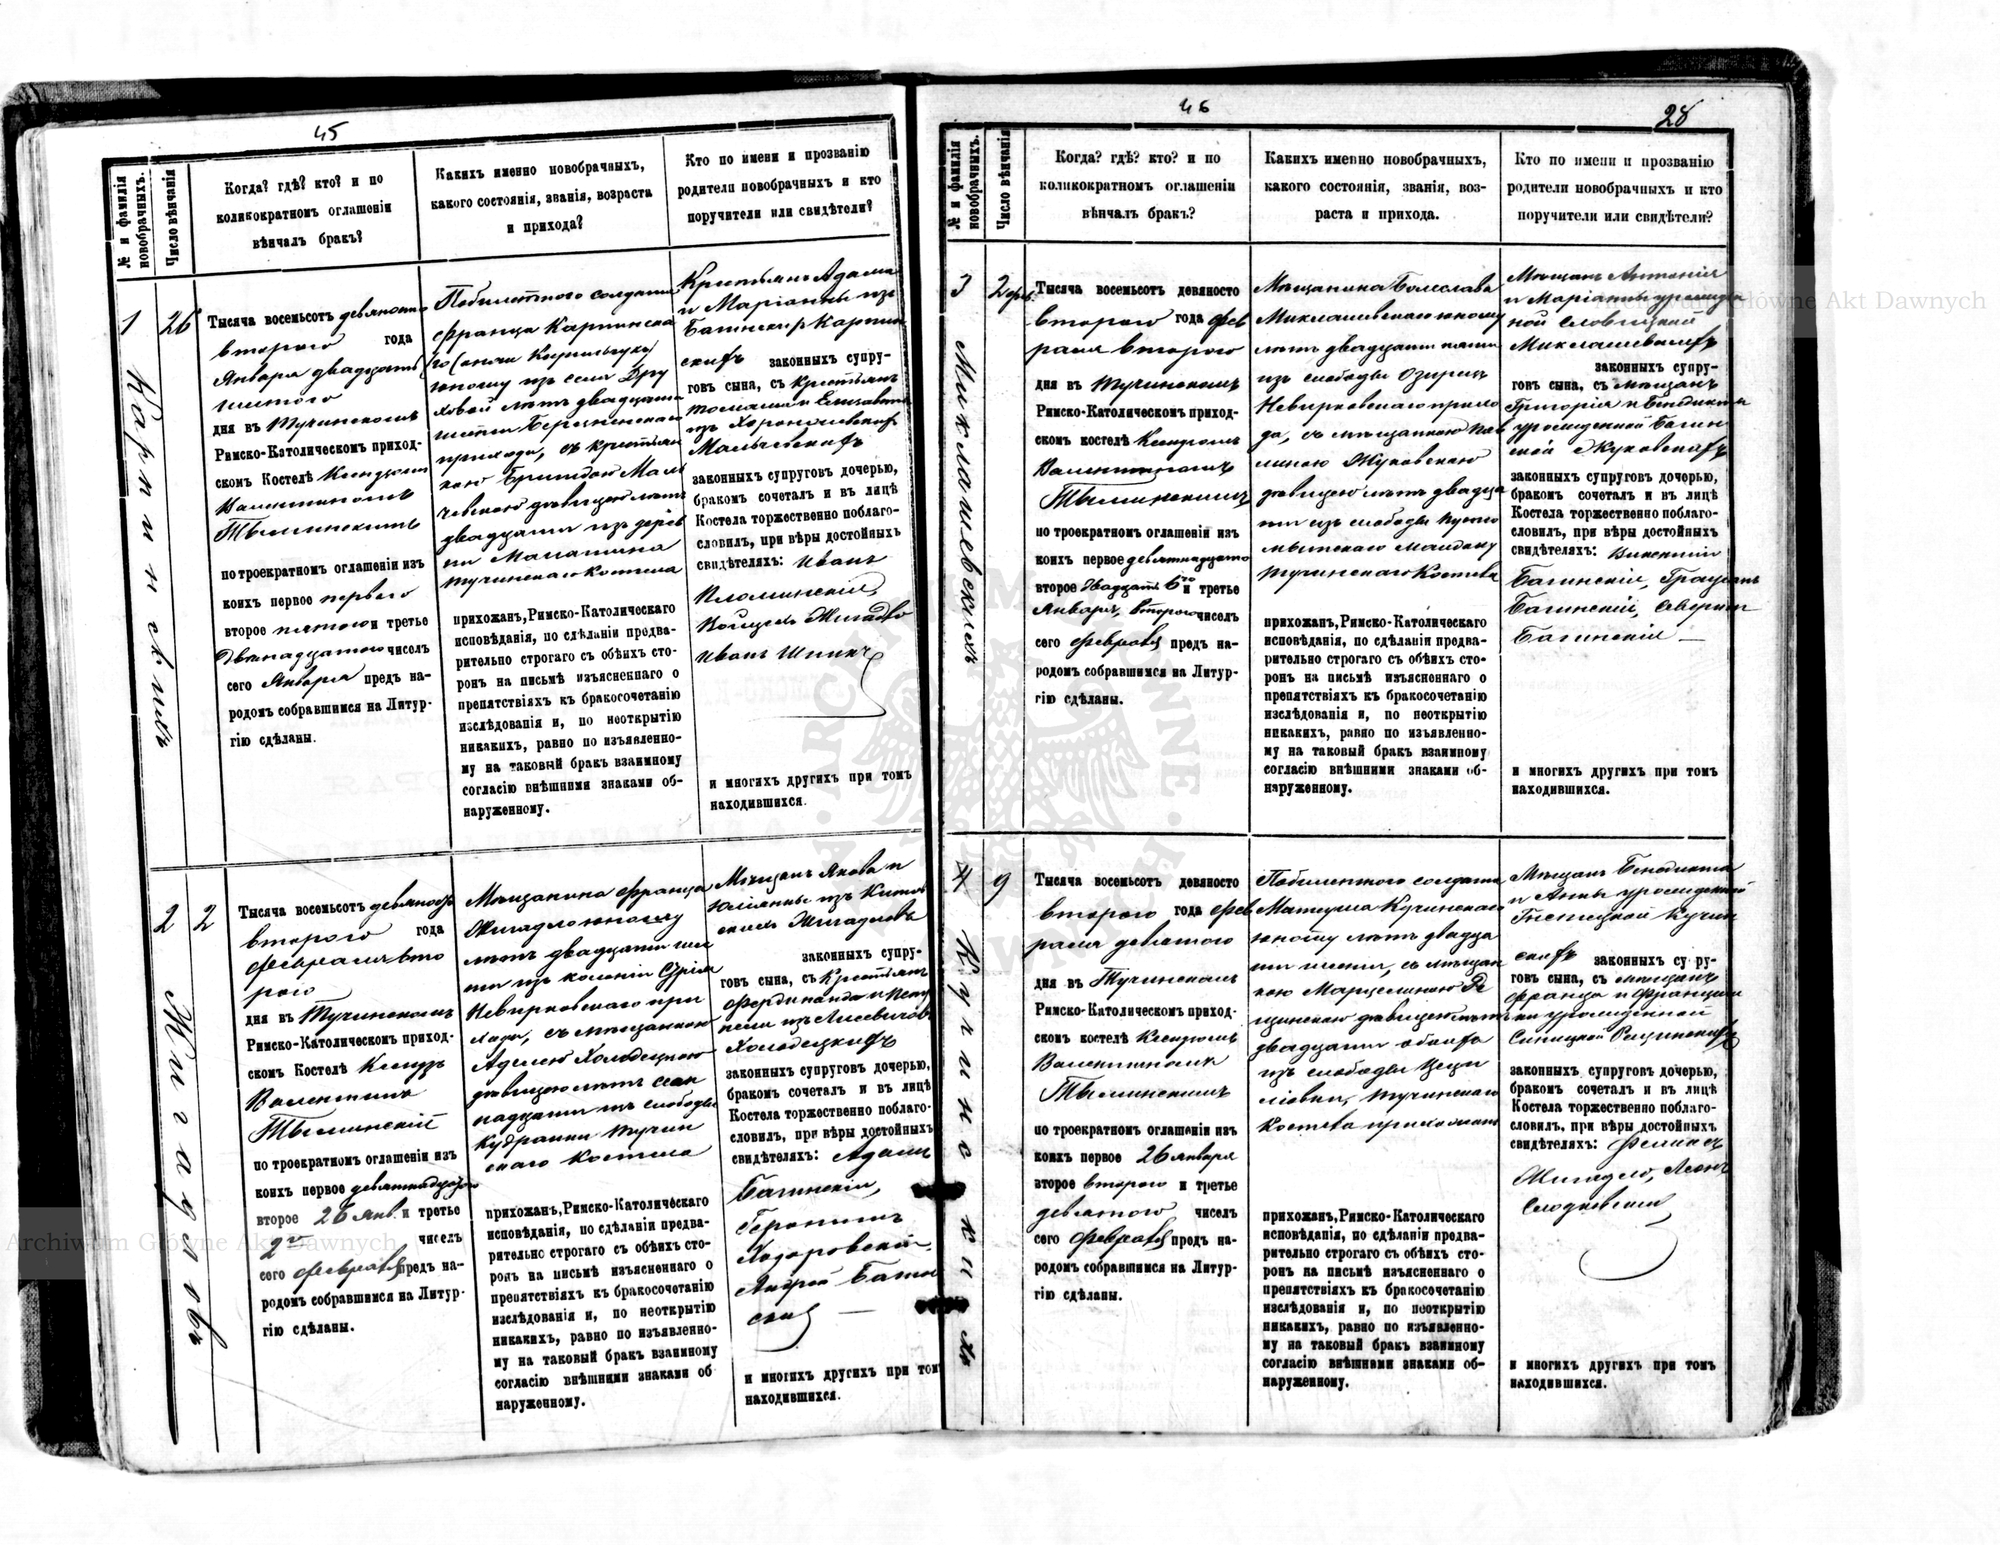 45
№ и фамилія новобрачныхъ.
Число вѣнчанія
Когда? гдѣ? кто? и по
коликократномъ оглашеніи
вѣнчалъ бракъ?
Какихъ именно новобрачныхъ,
какого состоянія, званія, возраста
и прихода?
Кто по имени и прозванію
родители новобрачныхъ и кто
поручители или свидѣтели?
1
Карпинскихъ
26
Тысяча восемьсотъ девяносто
второго года
Января двадцать
шестого
дня въ Тучинскомъ
Римско-Католическомъ приход-
скомъ Костелѣ Ксендзомъ
Валентиномъ
Тыминскимъ
по троекратномъ оглашеніи изъ
коихъ первое первого
второе шестого и третье
Двѣнадцатого чиселъ
сего Января предъ на-
родомъ собравшимся на Литур-
гію сдѣланы.
Побилетного солдата
Франца Карпинска
го
юношу изъ села Дру
ховой лѣтъ двадцати
шести Березненскаго
прихода, съ крестьян
кою Бригидою Маль
чевскою дѣвицею лѣтъ
двадцати изъ дерев
ни
Тучинскаго Костела
прихожанъ, Римско-Католическаго
исповѣданія, по сдѣланіи предва-
рительно строгаго съ обѣихъ сто-
ронъ на письмѣ изъясненнаго о
препятствіяхъ къ бракосочетанію
изслѣдованія и, по неоткрытію
никакихъ, равно по изъявленно-
му на таковый бракъ взаимному
согласію внѣшними знаками об-
наруженному.
Крестьянъ Адама
и Маріанны изъ
Карпин
скихъ законныхъ супру-
говъ сына, съ Крестьянъ
Томаша и Елизаветы
изъ
Мальчевскихъ
законныхъ супруговъ дочерью,
бракомъ сочеталъ и въ лицѣ
Костела торжественно поблаго-
словилъ, при вѣры достойныхъ
свидѣтеляхъ: Иванъ
Пломинскій,
Войцехъ Жигадло
Иванъ
и многихъ другихъ при томъ
находившихся.
2
Жигадловъ
2
Тысяча восемьсотъ девяносто
второго года
Февраля вто
рого
дня въ Тучинскомъ
Римско-Католическомъ приход-
скомъ Костелѣ Ксендзъ
Валентинъ
Тыминскій
по троекратномъ оглашеніи изъ
коихъ первое девятнадцатого
второе 26 янв. и третье
2го чиселъ
сего февраля предъ на-
родомъ собравшимся на Литур-
гію сдѣланы.
Мѣщанина Франца
Жигадло юношу
лѣтъ двадцати шес
ти изъ колоніи
Невирковскаго при
хода, съ мѣщанкою
Аделею Холодецкою
дѣвицею лѣтъ сем
надцати изъ слободы
Кудранки Тучин
скаго Костела
прихожанъ, Римско-Католическаго
исповѣданія, по сдѣланіи предва-
рительно строгаго съ обѣихъ сто-
ронъ на письмѣ изъясненнаго о
препятствіяхъ къ бракосочетанію
изслѣдованія и, по неоткрытію
никакихъ, равно по изъявленно-
му на таковый бракъ взаимному
согласію внѣшними знаками об
наруженному.
Мѣщанъ Якова и
Юліанны изъ
Жигадловъ
законныхъ супру-
говъ сына, съ Крестьянъ
Фердинанда и
изъ Лисевичовъ
Холодецкихъ
законныхъ супруговъ дочерью,
бракомъ сочеталъ и въ лицѣ
Костела торжественно поблаго-
словилъ, при вѣры достойныхъ
свидѣтеляхъ: Адамъ
Багинскій,
Геронимъ
Ходоровскій,
Андрей Багин
скій
и многихъ другихъ при томъ
находившихся.
46
28
№ и фамилія новобрачныхъ.
Число вѣнчанія
Когда? гдѣ? кто? и по
коликократномъ оглашеніи
вѣнчалъ бракъ?
Какихъ именно новобрачныхъ,
какого состоянія, званія, воз-
раста и прихода.
Кто по имени и прозванію
родители новобрачныхъ и кто
поручители или свидѣтели?
3
Миклашевскихъ
2 фев.
Тысяча восемьсотъ девяносто
второго года фев
раля второго
дня въ Тучинскомъ
Римско-Католическомъ приход-
скомъ костелѣ Ксендзомъ
Валентиномъ
Тыминскимъ
по троекратномъ оглашеніи изъ
коихъ первое девятнадцатого
второе двадцать 6го и третье
Января, второго чиселъ
сего февраля предъ на-
родомъ собравшимся на Литур-
гію сдѣланы.
Мѣщанина Болеслава
Миклашевскаго юношу
лѣтъ двадцати пяти
изъ слободы Озирецъ
Невирковскаго прихо
да, съ мѣщанкою Пав
линою Жуковскою
дѣвицею лѣтъ двадца
ти изъ слободы Пусто
мытскаго Майдану
Тучинскаго Костела
прихожанъ, Римско-Католическаго
исповѣданія, по сдѣланіи предва-
рительно строгаго съ обѣихъ сто-
ронъ на письмѣ изъясненнаго о
препятствіяхъ къ бракосочетанію
изслѣдованія и, по неоткрытію
никакихъ, равно по изъявленно-
му на таковый бракъ взаимному
согласію внѣшними знаками об-
наруженному.
Мѣщанъ Антонія
и Маріанны урожден
ной Словицкой
Миклашевскихъ
законныхъ супру-
говъ сына, съ мѣщанъ
Григорія и Бенедикты
урожденной Багин
ской Жуковскихъ
законныхъ супруговъ дочерью,
бракомъ сочеталъ и въ лицѣ
Костела торжественно поблаго-
словилъ, при вѣры достойныхъ
свидѣтеляхъ: Викентій
Багинскій,
Багинскій, Северинъ
Багинскій
и многихъ другихъ при томъ
находившихся.
4
Кучинскихъ
9
Тысяча восемьсотъ девяносто
второго года фев
раля девятого
дня въ Тучинскомъ
Римско-Католическомъ приход-
скомъ костелѣ Ксендзомъ
Валентиномъ
Тыминскимъ
по троекратномъ оглашеніи изъ
коихъ первое 26 января
второе второго и третье
девятого чиселъ
сего февраля предъ на-
родомъ собравшимся на Литур-
гію сдѣланы.
Побилетного солдата
Матеуша Кучинскаго
юношу лѣтъ двадца
ти шести, съ мѣщан
кою Марцелиною Ро
щинскою дѣвицею лѣтъ
двадцати обоихъ
изъ слободы Цеци
ліовки, Тучинскаго
Костела прихожанъ
прихожанъ, Римско-Католическаго
исповѣданія, по сдѣланіи предва-
рительно строгаго съ обѣихъ сто-
ронъ на письмѣ изъясненнаго о
препятствіяхъ къ бракосочетанію
изслѣдованія и, по неоткрытію
никакихъ, равно по изъявленно-
му на таковый бракъ взаимному
согласію внѣшними знаками об-
наруженному.
Мѣщанъ Бенедикта
и Анны урожденной
Гнѣтецкой Кучин
скихъ законныхъ супру-
говъ сына, съ мѣщанъ
Франца и Францишки
урожденной
Синицкой Рощинскихъ
законныхъ супруговъ дочерью,
бракомъ сочеталъ и въ лицѣ
Костела торжественно поблаго-
словилъ, при вѣры достойныхъ
свидѣтеляхъ: Феликсъ
Жигадло, Леонъ
Слодковскій
и многихъ другихъ при томъ
находившихся.
Archiwum Główne Akt Dawnych
Główne Akt Dawnych
ARCHIWUM GŁÓWNE AKT DAWNYCH